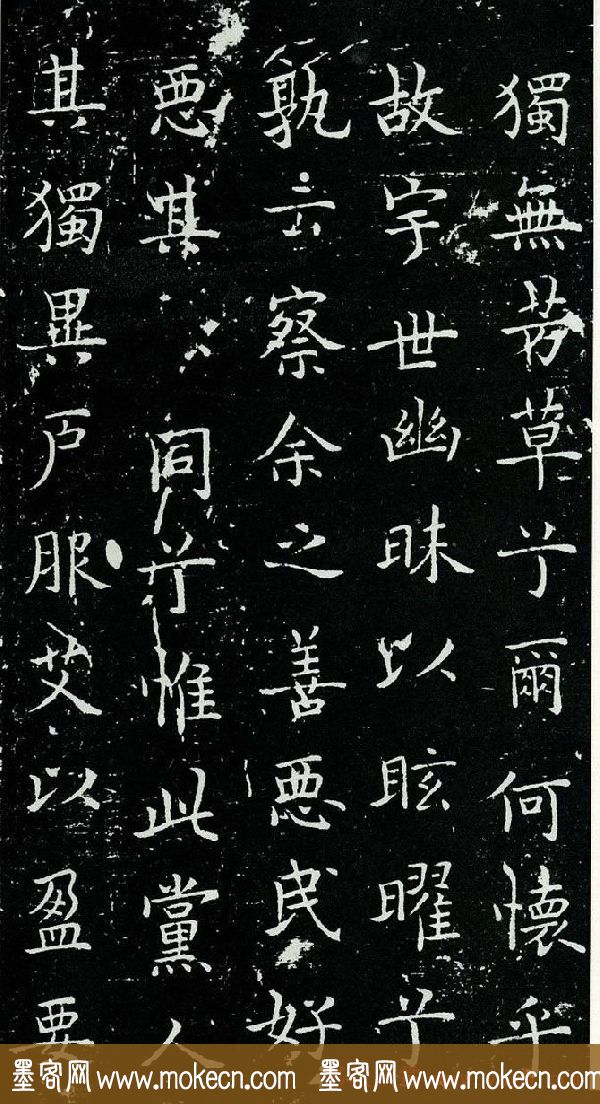 獨無芳草兮爾何懷乎
故宇世幽昧以眩曜兮
孰云察余之善悪民好
悪其同兮惟此黨人
其獨異戶服艾以盈要
墨客网 www.mokecn.com 墨客网 www.mokecn.com